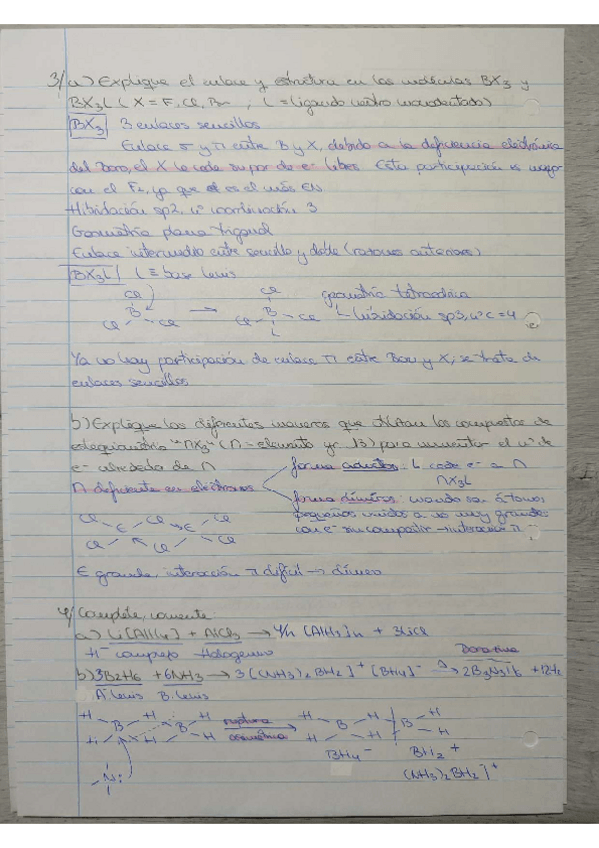 3/ a) Explique el enlace y estructura en las moléculas BX3 y
BX3L (X = F, Cl, Br , L = ligando neutro monodentado)
BX3 3 enlaces sencillos
Enlace σ y π entre B y X, debido a la deficiencia electrónica
del Boro, el X le cede su par de e- libres. Esta participación es mayor
con el F, ya que es el más EN
Hibridación sp2, nº coordinación 3
Geometría plana trigonal
Enlace intermedio entre sencillo y doble (razones anteriores)
BX3L L = base lewis
Cl Cl geometría tetraédrica
B → B Cl hibridación sp3, nºC = 4
Cl Cl Cl L
Ya no hay participación de enlace π entre B y X, se trata de
enlaces sencillos
b) Explique las diferentes maneras que adoptan los compuestos de
estequiometría "MX3" (M = elemento gr. 13) para aumentar el nº de
e- alrededor de M
forma aductos: L cede e- a M
M deficiente en electrones MX3L
forma dímeros: cuando son átomos
pequeños unidos a no muy grandes
con e- sin compartir → interacción π
Cl Cl Cl
E E
Cl Cl Cl
E grande, interacción π difícil → dímero
4/ Complete, comente:
a) Li[AlH4] + AlCl3 → 4/n [AlH3]n + 3LiCl
H- complejo Halogenuro
b) 3B2H6 + 6NH3 → 3[(NH3)2BH2]+ [BH4]- Δ→ 2B3N3H6 + 12H2
A. lewis B. lewis
H H H H H
B B ruptura B B
H H H asimétrica H H H
BH4- BH2+
N: (NH3)2BH2]+